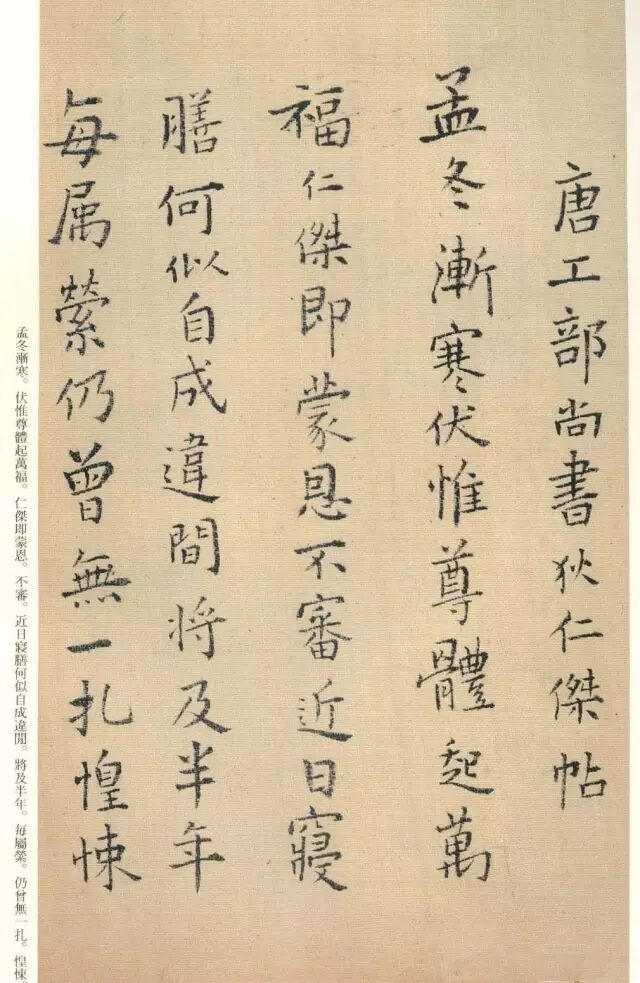 唐工部尚書狄仁傑帖
孟冬漸寒伏惟尊體起萬
福仁傑即蒙恩不審近日寢
膳何似自成違間將及半年
每属縈仍曾無一扎惶悚
孟冬漸寒。伏惟尊體起萬福。仁傑即蒙恩。不審。近日寢膳何似自成違間。將及半年。每屬縈。仍曾無一扎。惶悚。